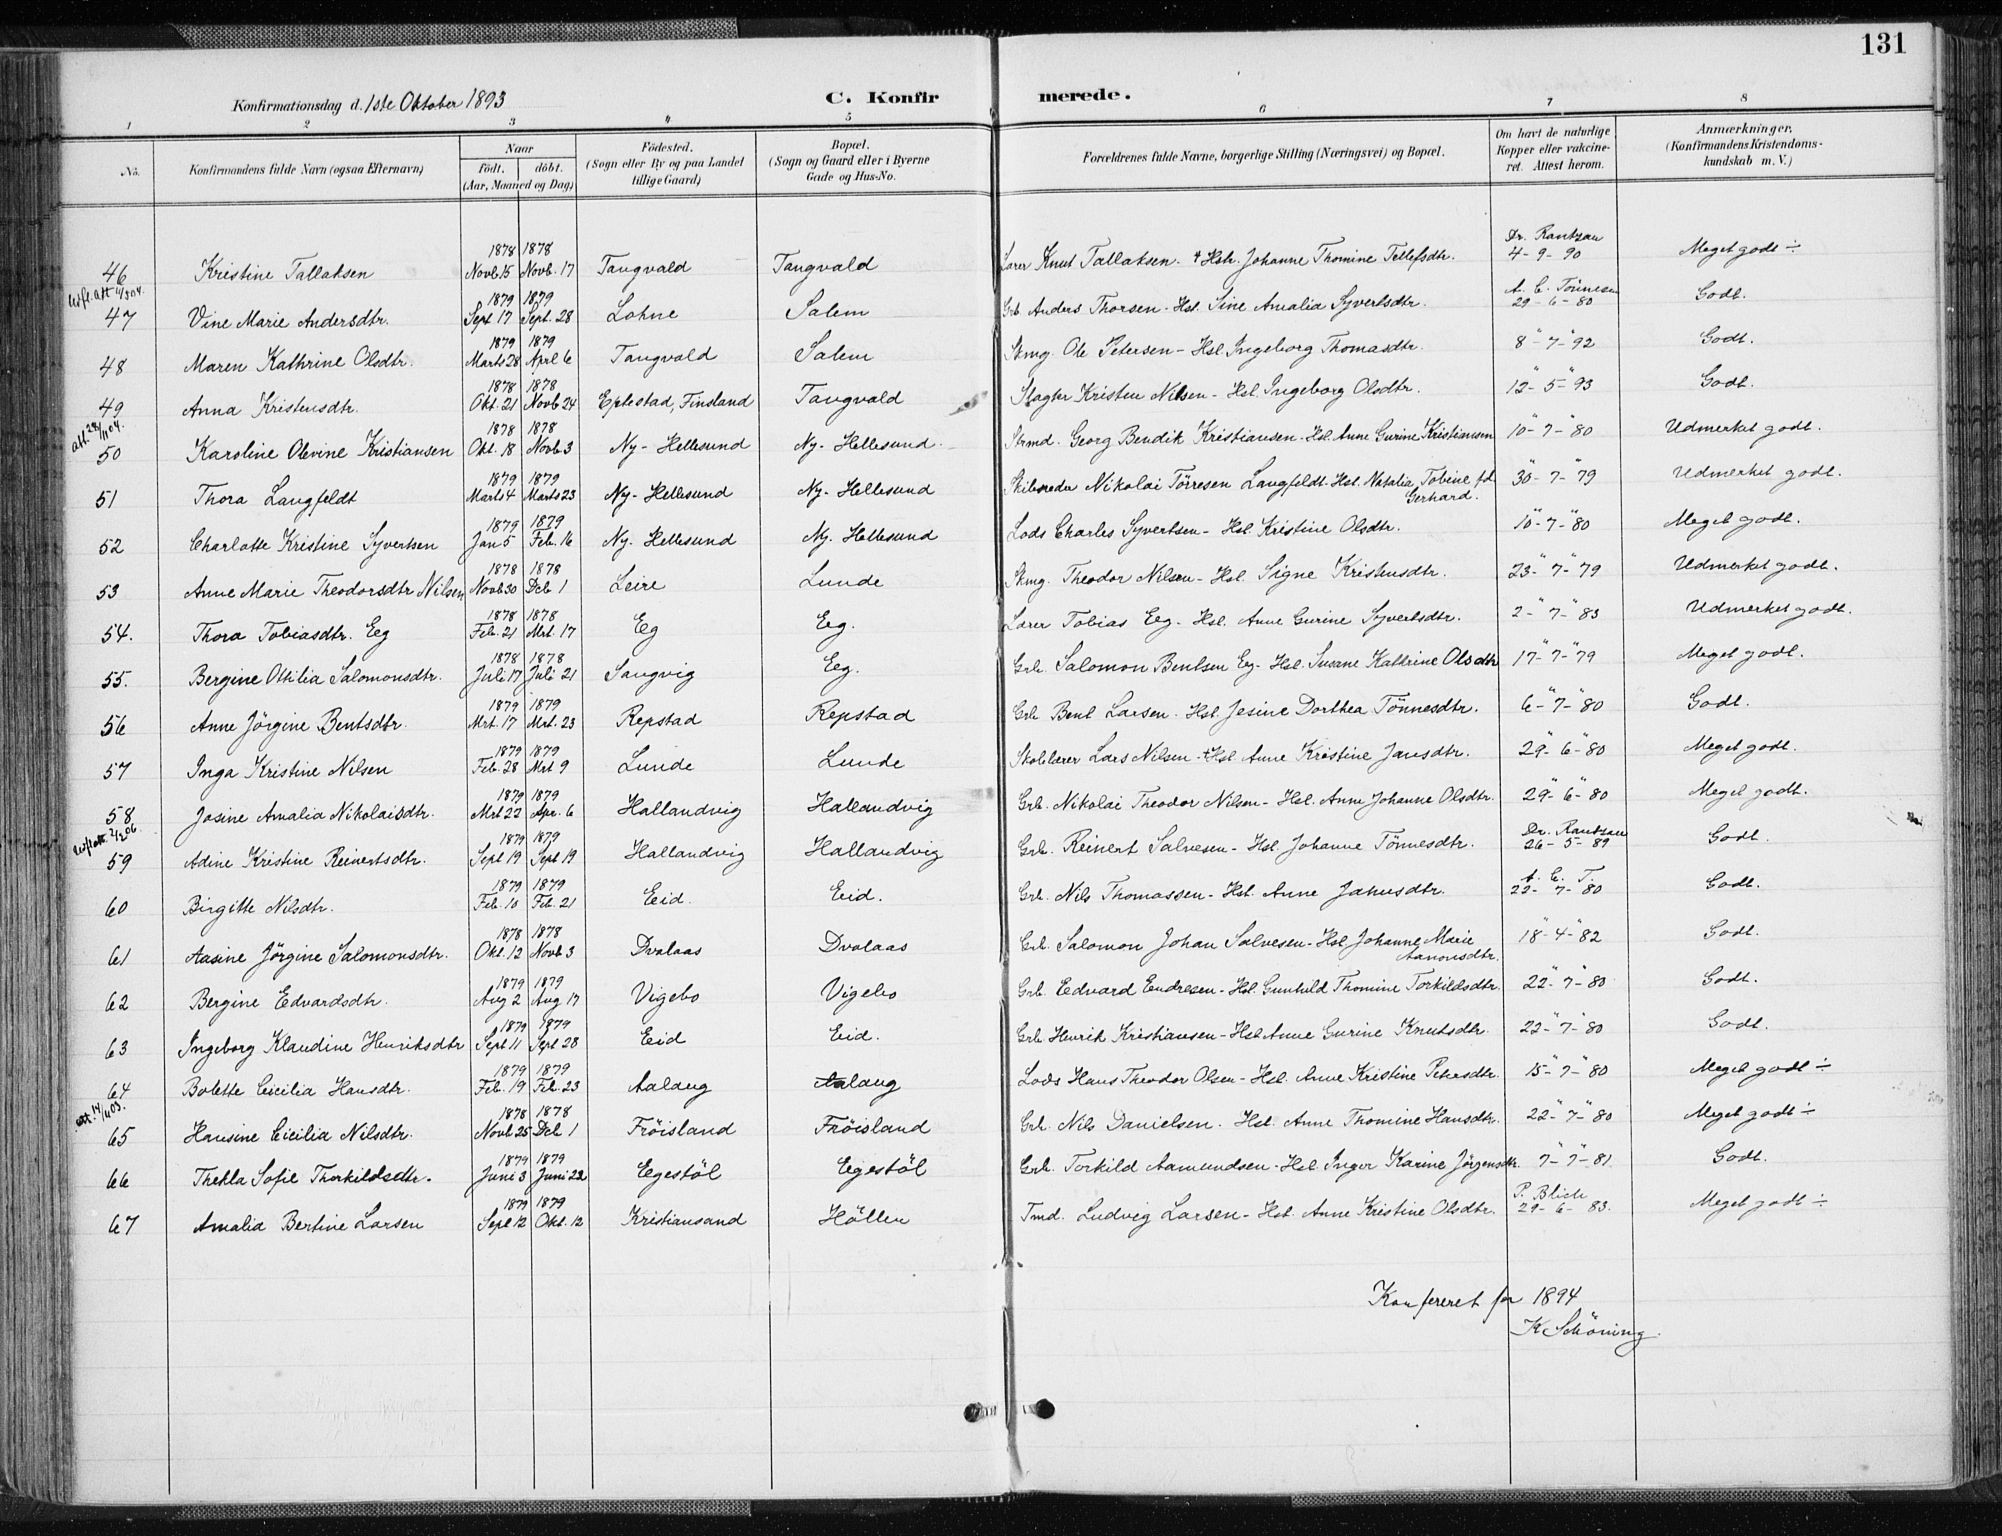 131
Konfirmationsdag d. 1ste Oktober 1893
C. Konfir merede.
1 2 3 4 5 6 7 8
No. Konfirmandens fulde Navn (ogsaa Efternavn) Naar födt. döbt. (Aar, Maaned og Dag) Födested. (Sogn eller By og paa Landet tillige Gaard) Bopæl. (Sogn og Gaard eller i Byerne Gade og Hus-No. Forældrenes fulde Navne, borgerlige Stilling (Næringsvei) og Bopæl. Om havt de naturlige Kopper eller vakcineret. Attest herom. Anmærkninger, (Konfirmandens Kristendomskundskab m. V.)
46 Kristine Tallaksen 1878 Novb. 15 1878 Novb. 17 Tangvald Tangvald Lærer Knut Tallaksen - Hstr. Johanne Thomine Tellefsdtr. Dr. Rantzau 4-9-90 Meget godt ÷
47 Vine Marie Andersdtr. 1879 Sept 17 1879 Sept. 28 Lohne Salem Grb. Anders Thorsen - Hst. Sine Amalia Syvertsdtr. A. C. Tönnesen 29-6-80 Godt.
48 Maren Kathrine Olsdtr. 1879 Marts 28 1879 April 6 Tangvald Salem Skmg. Ole Petersen - Hst. Ingeborg Thomasdtr. 8"-7-"92 Godt.
49 Anna Kristensdtr. 1878 Okt. 21 1878 Novb 24 Eplestad, Finsland Tangvald Slagter Kristen Nilsen - Hst. Ingeborg Olsdtr. 12"-5-"93 Godt.
att. 28/11 04.
50 Karoline Olevine Kristiansen 1878 Okt. 18 1878 Novb. 3 Ny-Hellesund Ny-Hellesund. Strmd. Georg Bendik Kristiansen - Hst. Anne Gurine Kristiansen 10"-7-"80 Udmerket godt.
51 Thora Langfeldt 1879 Marts 4 1879 Marts 23 Ny-Hellesund Ny-Hellesund Skibsreder Nikolai Törresen Langfeldt. Hst. Natalia Tobine fd. Gerhard. 30"-7-"79 Udmerket godt.
52 Charlotte Kristine Syvertsen 1879 Jan 5 1879 Feb. 16 Ny-Hellesund Ny. Hellesund Lods Charles Syvertsen - Hst. Kristine Olsdtr. 10"-7-"80 Meget godt.
53 Anne Marie Theodorsdtr Nilsen 1878 Novb 30 1878 Dcb 1 Leire Lunde Skmg. Theodor Nilsen - Hst. Signe Kristensdtr. 23"-7-"79 Udmerket godt.
54. Thora Tobiasdtr. Eeg 1878 Feb. 21 1878 Mrt. 17 Eg Eeg. Lærer Tobias Eeg - Hst. Anne Gurine Syvertsdtr. 2-"7-"83 Udmerket godt.
55. Bergine Ottilia Salomonsdtr. 1878 Juli 17 1878 Juli 21 Sangvig Eeg. Grb. Salomon Bentsen Eg - Hst. Susane Kathrine Olsdtr 17"-7-"79 Meget godt.
56 Anne Jörgine Bentsdtr. 1879 Mrt. 17 1879 Mrt. 23 Repstad Repstad Grb. Bent Larsen. Hst. Jesine Dorthea Tönnesdtr. 6"-7-"80 Godt.
57 Inga Kristine Nilsen 1879 Feb. 28 1879 Mrt 9 Lunde Lunde Skolelærer Lars Nilsen - Hst Anne Kristine Jansdtr. 29"-6-"80 Meget godt.
58 Josine Amalia Nikolaisdtr. 1879 Mrt 22 1879 Apr. 6 Hallandvig Hallandvig Grb. Nikolai Theodor Nilsen - Hst. Anne Johanne Olsdtr. 29"-6-"80 Meget godt.
59 Adine Kristine Reinertsdtr. 1879 Sept 19 1879 Sept 19 Hallandvig Hallandvig Grb. Reinert Salvesen - Hst. Johanne Tönnesdtr. Dr. Rantzau 26-5-89 Godt.
60 Birgitte Nilsdtr. 1879 Feb. 10 1879 Feb. 21 Eid. Eid. Grb. Nils Thomassen - Hst. Anne Jahusdtr. A. C. T. 22-7-80 Godt.
61 Aasine Jörgine Salomonsdtr. 1878 Okt. 12 1878 Novb 3 Dvalaas Dvalaas Grb. Salomon Johan Salvesen - Hst. Johanne Marie Aanonsdtr. 18"-4-"82 Godt.
62 Bergine Edvardsdtr. 1879 Aug 2 1879 Aug 17 Vigebo Vigebo Grb. Edvard Endresen - Hst. Gunhild Thomine Torkildsdtr. 22"-7-"80 Godt.
63 Ingeborg Klaudine Henriksdtr 1879 Sept 11 1879 Sept 28 Eid Eid. Grb. Henrik Kristiansen - Hst. Anne Gurine Knutsdtr. 22-"7-"80 Godt.
64 Bolette Cicilia Hansdtr. 1879 Feb. 19 1879 Feb. 23 Aalaug Aalaug Lods Hans Theodor Olsen - Hst. Anne Kristine Petersdtr. 15"-7-"80 Meget godt ÷
65 Hansine Cicilia Nilsdtr. 1878 Novb 25 1878 Dcb 1 Fröisland Fröisland Grb. Nils Danielsen. Hst. Anne Thomine Hansdtr. 22"-7-"80 Meget godt ÷
66 Thekla Sofie Thorkildsdtr. 1879 Juni 3 1879 Juni 22 Eegestöl Egestöl Grb. Torkild Aamundsen - Hst. Inger Karine Jörgensdtr. 7"-"7-"81 Godt.
67 Amalia Bertine Larsen 1879 Sept 12 1879 Okt. 12 Kristiansand Höllen Tmd. Ludvig Larsen - Hst. Anne Kristine Olsdtr. P. Blich 29-6-83. Meget godt ÷
Konfereret for 1894
K Schöning.